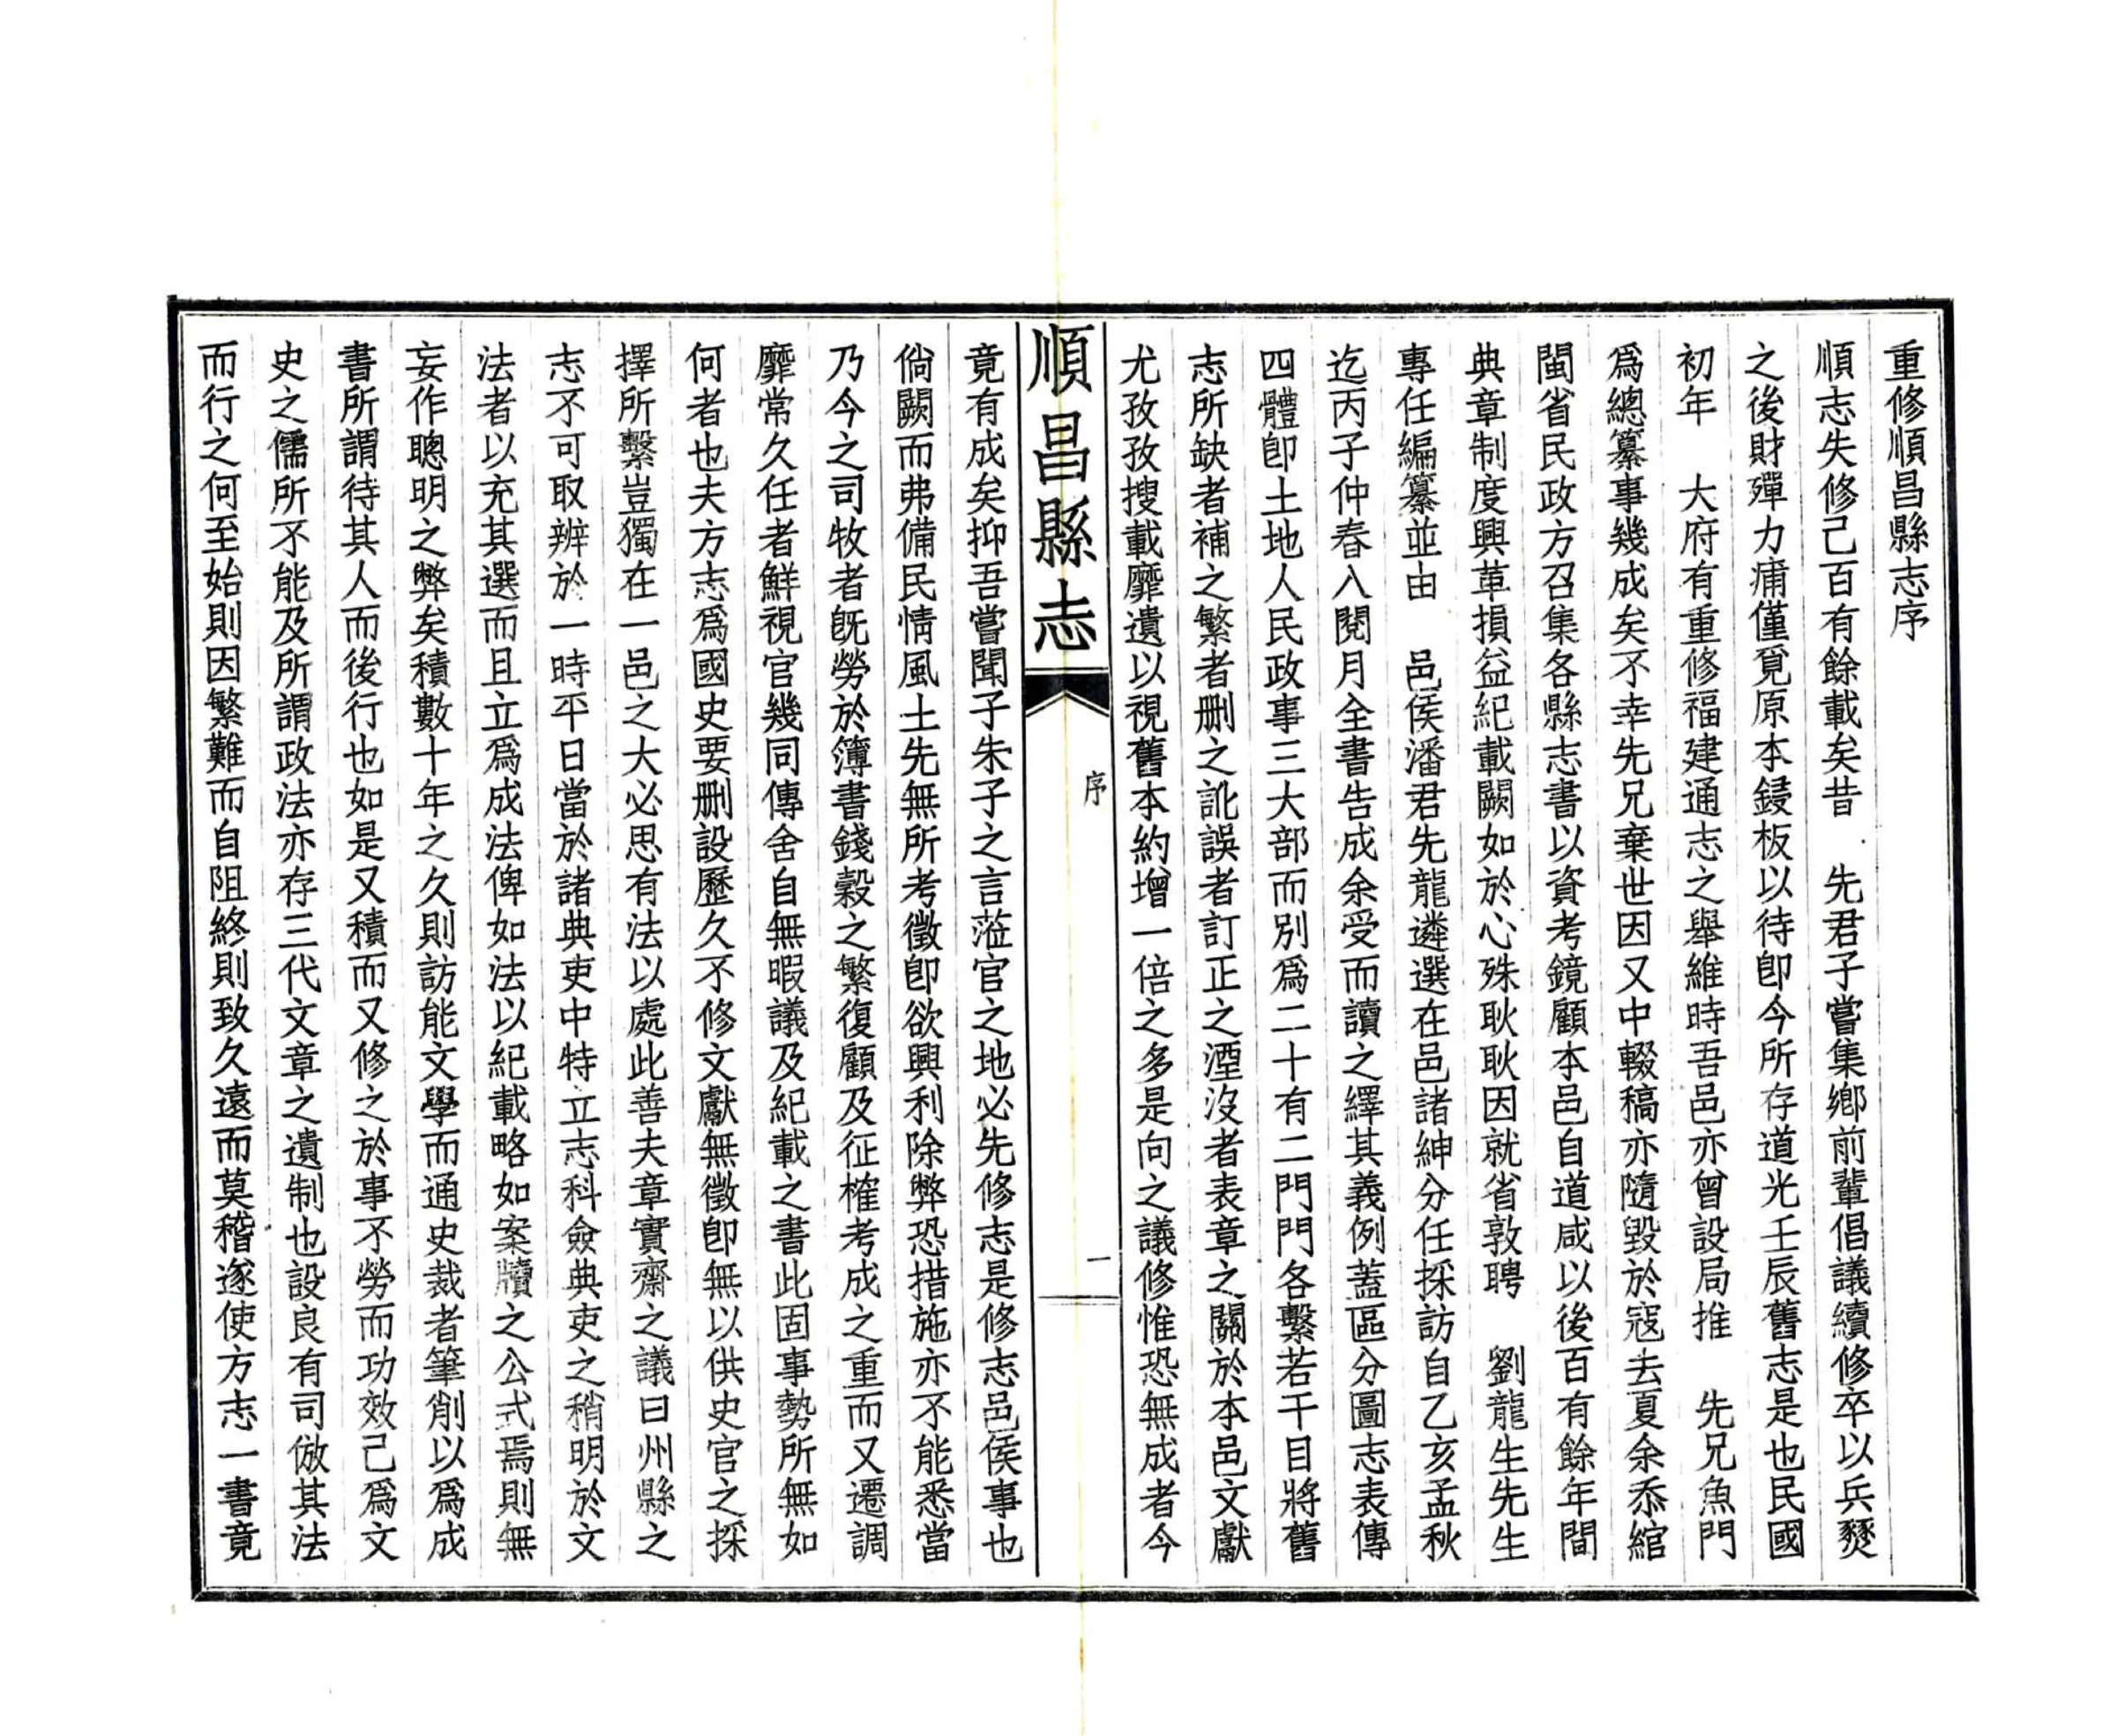 重修順昌縣志序
順志失修己百有餘載矣昔　先君子嘗集鄉前輩倡議續修卒以兵燹
之後財殫力痡僅覓原本鋟板以待卽今所存道光壬辰舊志是也民國
初年　大府有重修福建通志之舉維時吾邑亦曾設局推　先兄魚門
爲總纂事幾成矣不幸先兄棄世因又中輟稿亦隨毀於寇去夏余忝綰
閩省民政方召集各縣志書以資考鏡顧本邑自道咸以後百有餘年間
典章制度興革損益紀載闕如於心殊耿耿因就省敦聘　劉龍生先生
專任編纂並由　邑侯潘君先龍遴選在邑諸紳分任採訪自乙亥孟秋
迄丙子仲春入閱月全書告成余受而讀之繹其義例蓋區分圖志表傳
四體卽土地人民政事三大部而別爲二十有二門門各繫若干目將舊
志所缺者補之繁者删之訛誤者訂正之湮沒者表章之關於本邑文獻
尤孜孜搜載靡遺以視舊本約增一倍之多是向之議修惟恐無成者今
順昌縣志
序
一
竟有成矣抑吾嘗聞子朱子之言蒞官之地必先修志是修志邑侯事也
倘闕而弗備民情風土先無所考徵卽欲興利除弊恐措施亦不能悉當
乃今之司牧者旣勞於簿書錢穀之繁復顧及征榷考成之重而又遷調
靡常久任者鮮視官幾同傳舍自無暇議及紀載之書此固事勢所無如
何者也夫方志爲國史要删設歷久不修文獻無徵卽無以供史官之採
擇所繫豈獨在一邑之大必思有法以處此善夫章實齋之議曰州縣之
志不可取辨於一時平日當於諸典吏中特立志科僉典吏之稍明於文
法者以充其選而且立爲成法俾如法以紀載略如案牘之公式焉則無
妄作聰明之弊矣積數十年之久則訪能文學而通史裁者筆削以爲成
書所謂待其人而後行也如是又積而又修之於事不勞而功效己爲文
史之儒所不能及所謂政法亦存三代文章之遺制也設良有司倣其法
而行之何至始則因繁難而自阻終則致久遠而莫稽遂使方志一書竟